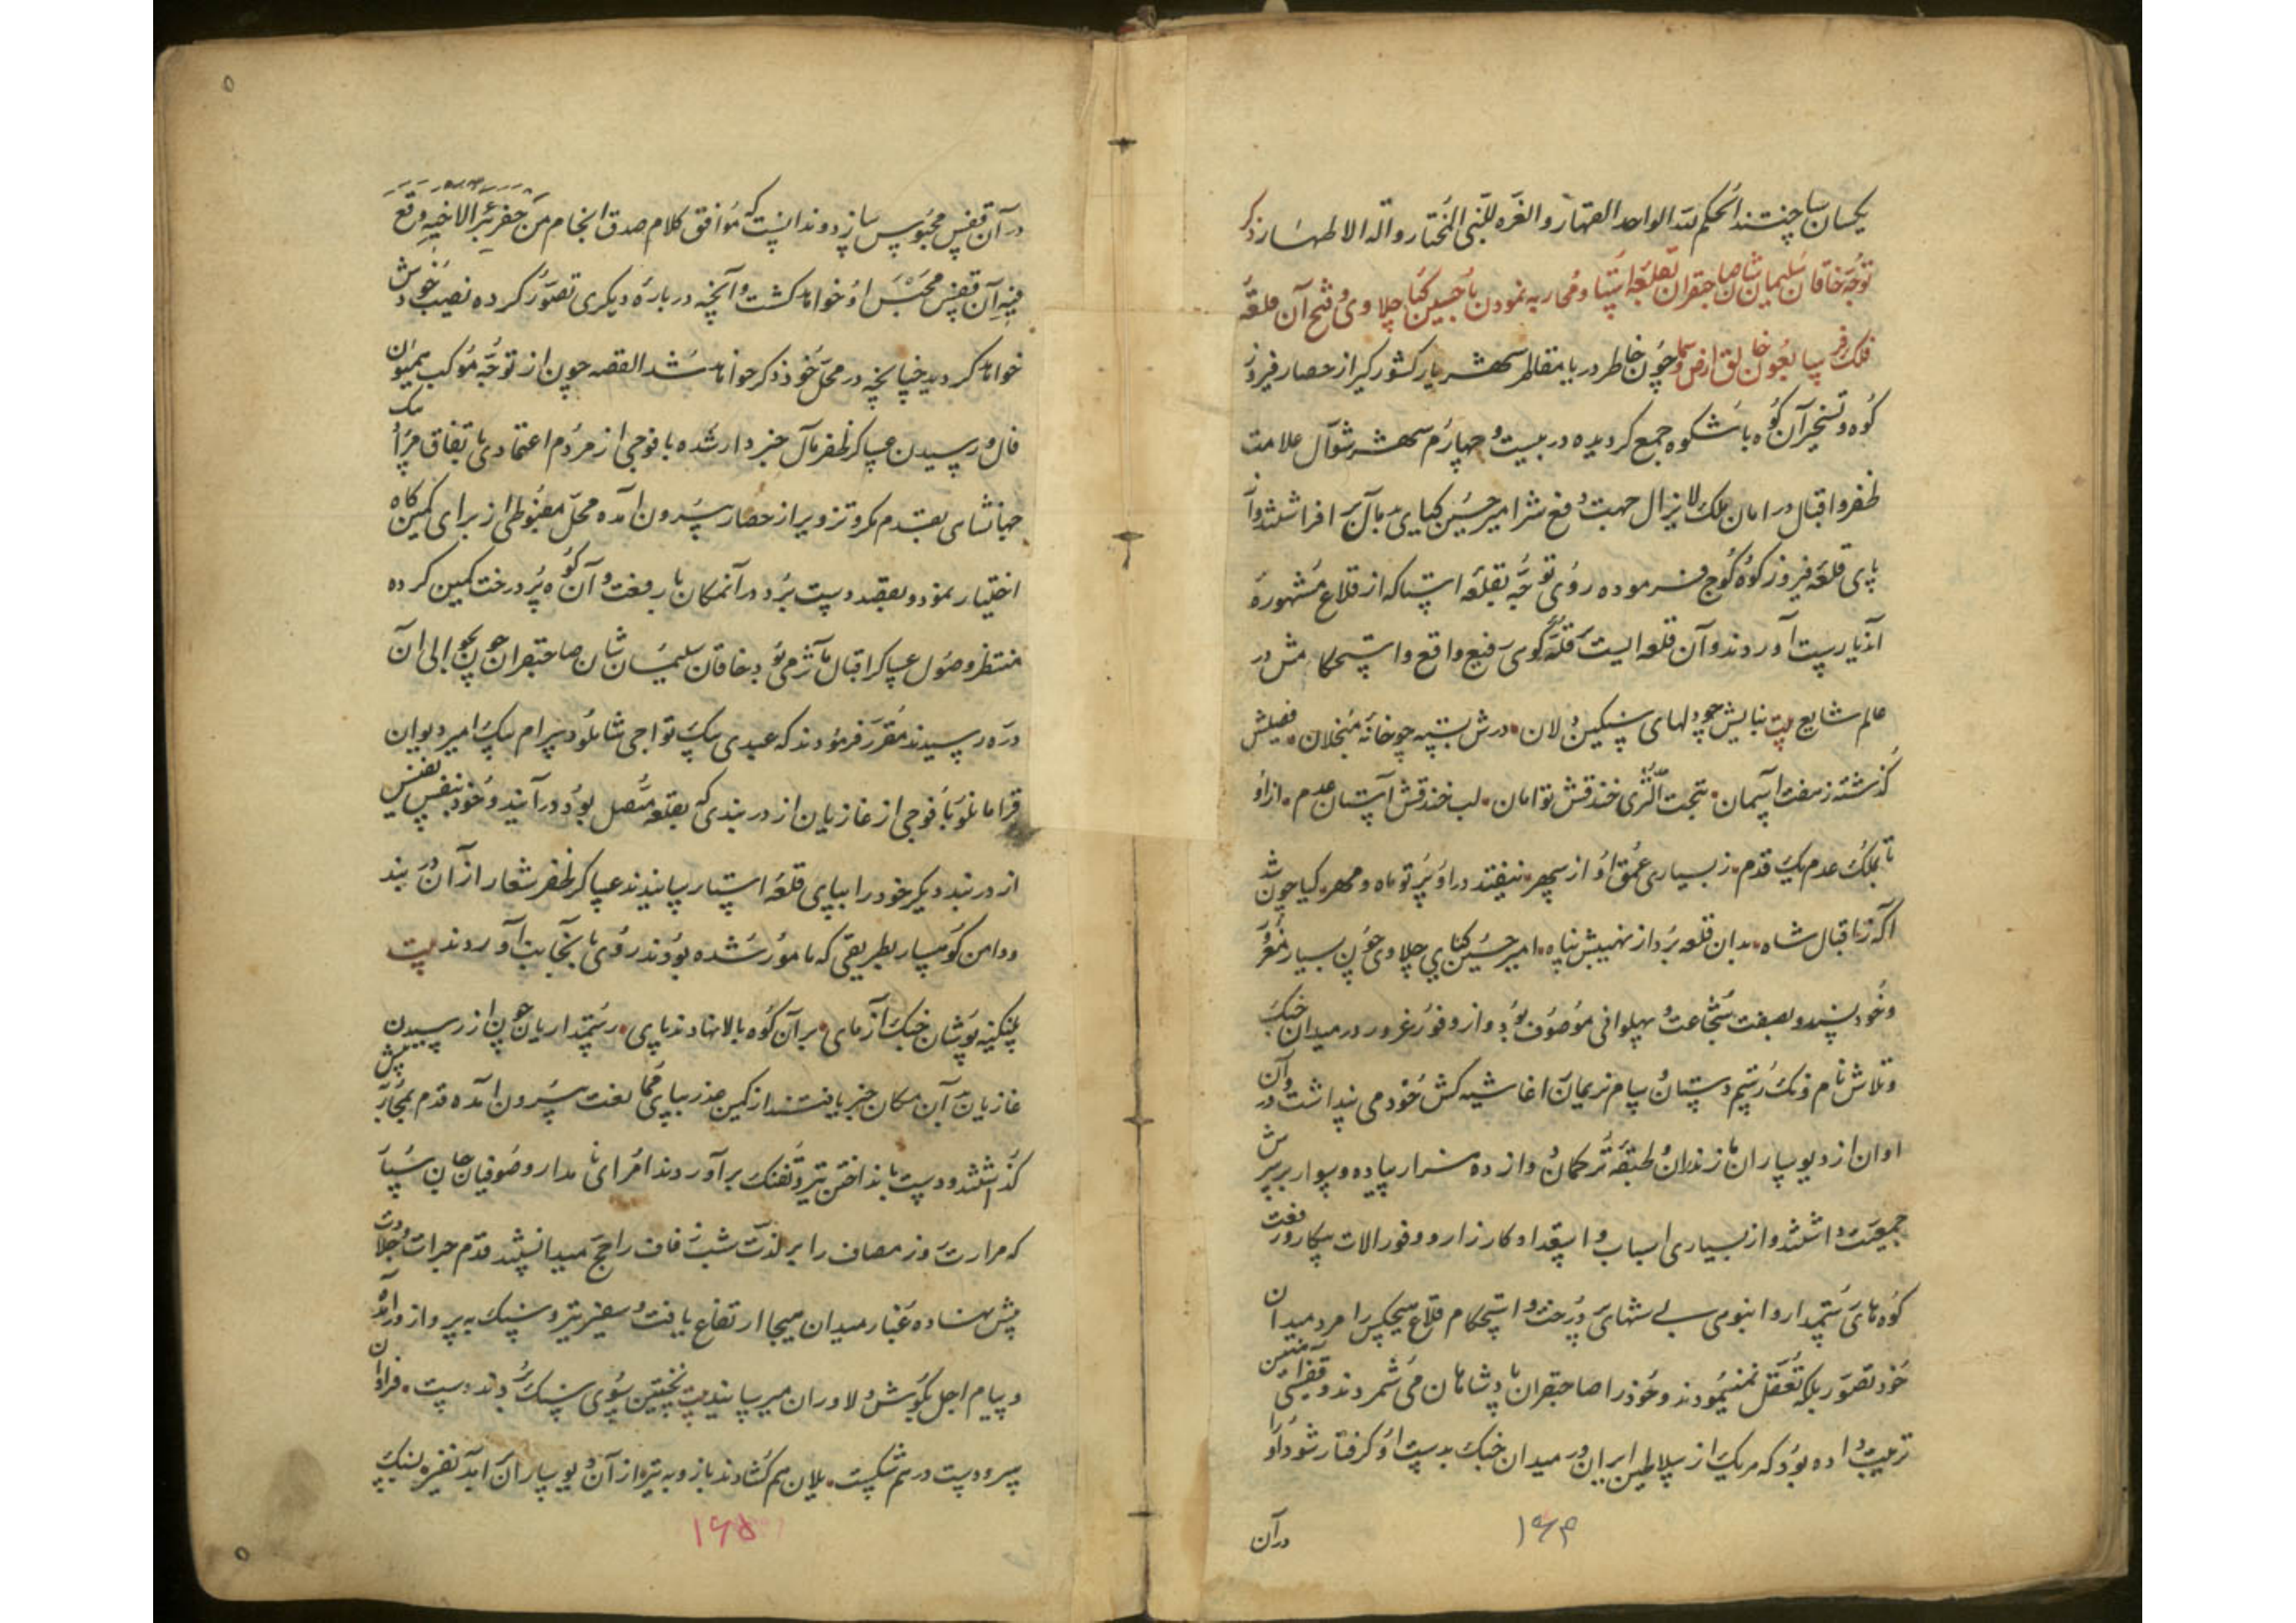 یکسان ساختند الحکم لله الواحد القهار و الغره للنبی المختار و اله الاطهار ذکر
توجه خاقان سلیمان شان صاحبقران بقلعه استا و محاربه نمودن با حسین کیا چلاوی و فتح آن قلعه
فلک فرسا بعون خالق ارض و سما چون خاطر دریا مقاطر شهریار کشورگیر از حصار فیروز
کوه و تسخیر آن کوه باشکوه جمع گردیده در بیست و چهارم شهر شوال علامت
ظفر و اقبال در امان ملک لایزال جهت دفع شر امیر حسین کیای بدمآل بر افراشتند و از
پای قلعه فیروز کوه کوچ فرموده روی توجه بقلعه استا که از قلاع مشهوره
آندیارست آوردند و آن قلعه ایست بر قله کوهی رفیع واقع و استحکامش در
عالم شایع بیت بنایش چو دلهای سنکین دلان درش بسته چو خانه مبخلان فصیلش
گذشته ز هفت آسمان بتحت الثری خندقش توامان لب خندقش آستان عدم ازو
تا بملک عدم یک قدم ز بسیاری عمق او از سپهر نیفتد در او پرتو ماه و مهر کیا چون شد
آگه ز اقبال شاه بدان قلعه برد از نهیبش پناه امیر حسین کیای چلاوی چون بسیار مغرور
و خودپسند و بصفت شجاعت و پهلوانی موصوف بود و از وفور غرور در میدان جنگ
و تلاش نام و ننگ رستم دستان و سام نریمان را غاشیه کش خود می پنداشت و در آن
اوان از دیوساران مازندران و طبقه ترکمان و از ده هزار پیاده و سوار بر سرش
جمعیت داشتند و از بسیاری اسباب و استعداد کارزار و وفور الات پیکار و رفعت
کوه های رستمدار و انبوهی بیشهای پردرخت و استحکام قلاع هیچکس را مرد میدان
خود تصور بلکه تعقل نمینمودند و خود را صاحبقران پادشاهان می شمردند و قفس آهنین
ترتیب داده بود که هر یک از سلاطین ایران در میدان جنگ بدست او گرفتار شود او را
در آن
۱۶۴
در آن قفس محبوس سازد و ندانست که موافق کلام صدق انجام من حفر بئرا لاخیه وقع
فیه آن قفس محبس او خواهد گشت و آنچه در باره دیگری تصور کرده نصیب خودش
خواهد گردید چنانچه در محل خود ذکر خواهد شد القصه چون از توجه موکب همیون
فال و رسیدن عساکر ظفر مآل خبردار شده با فوجی از مردم اعتمادی باتفاق مراد بیک
جهانشاهی بقدم مکر و تزویر از حصار بیرون آمده محل مضبوطی از برای کمین گاه
اختیار نمود و بقصد دست برد در آنمکان با رفعت و آن کوه پر درخت کمین کرده
منتظر وصول عساکر اقبال مآثر می بود خاقان سلیمان شان صاحبقران چون بحوالی آن
دره رسیدند مقرر فرمودند که عبدی بیک تواجی شاملو و بیرام بیک امیر دیوان
قرامانلو با فوجی از غازیان از دربندی که بقلعه متصل بود در آیند و خود بنفس نفیس
از دربند دیگر خود را بپای قلعه استا رسانیدند عساکر ظفر شعار از آن دربند
و دامن کوهسار بطریقی که مامور شده بودند روی بآنجانب آوردند بیت
پلنگینه پوشان جنگ آزمای بر آن کوه بالا نهادند پای رستمداریان چون از رسیدن
غازیان بدآن مکان خبر یافتند از کمین غدر بپای مخالفت بیرون آمده قدم بمحاربه پیش
گذاشتند و دست بانداختن تیر و تفنگ برآوردند امرای نامدار و صوفیان جان سپار
که مرارت روز مصاف را بر لذت شب زفاف راجح میدانستند قدم جرات و جلادت
پیش نهاده غبار میدان هیجا ارتفاع یافت و سفیر تیر و سنگ به پرواز درآمده
و پیام اجل بگوش دلاوران میرسانید بیت نخستین بسوی سنگ بردند دست فراوان
سر و دست در هم شکست یلان هم گشادند بازو به تیر از آن دیو ساران برآمد نفیر بسنگ
۱۶۵